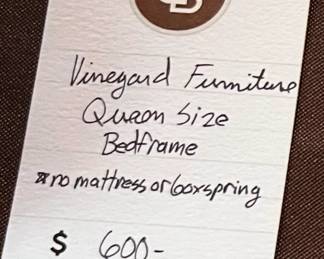 Vineyard Furniture
Queen Size
Bedframe
*no mattress or boxspring
$ 600-